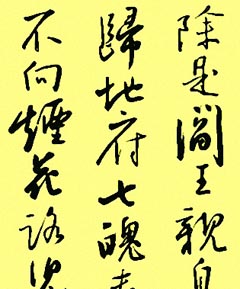 除是閻王親自
歸地府七魄
不向煙花路